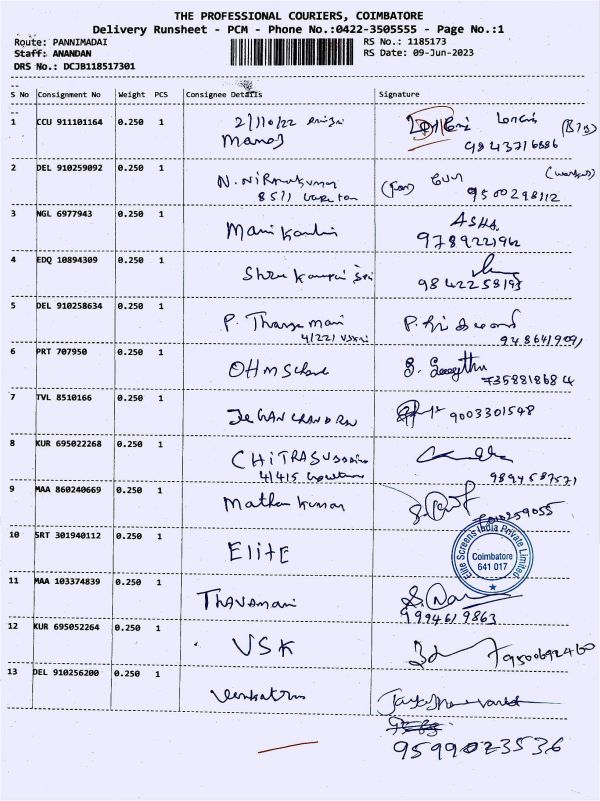 THE PROFESSIONAL COURIERS, COIMBATORE
Delivery Runsheet - PCM - Phone No.:0422-3505555 - Page No.:1
Route: PANNIMADAI
RS No.: 1185173
Staff: ANANDAN
RS Date: 09-Jun-2023
DRS No.: DCJB118517301
S No Consignment No Weight PCS Consignee Details Signature
1 CCU 911101164 0.250 1 2/110/22
Manoj
9843716686
2 DEL 910259092 0.250 1 N. Niranjkumar
9500298112
3 NGL 6977943 0.250 1 Mani Kandan ASHA
9789221962
4 EDQ 10894309 0.250 1 Shree
9842258193
5 DEL 910258634 0.250 1 P. Thangamani
4/221
9486419091
6 PRT 707950 0.250 1 OHM
7358818684
7 TVL 8510166 0.250 1 JEGAN CHANDRAN 9003301548
8 KUR 695022268 0.250 1 CHITRASU
4/415
9894587571
9 MAA 860240669 0.250 1 Mathan Kumar
10 SRT 301940112 0.250 1 ELITE
Elite Screens India Private Limited
Coimbatore
641 017
11 MAA 103374839 0.250 1 THAVAMANI
9994619863
12 KUR 695052264 0.250 1 VSK 9500692460
13 DEL 910256200 0.250 1
9599023536